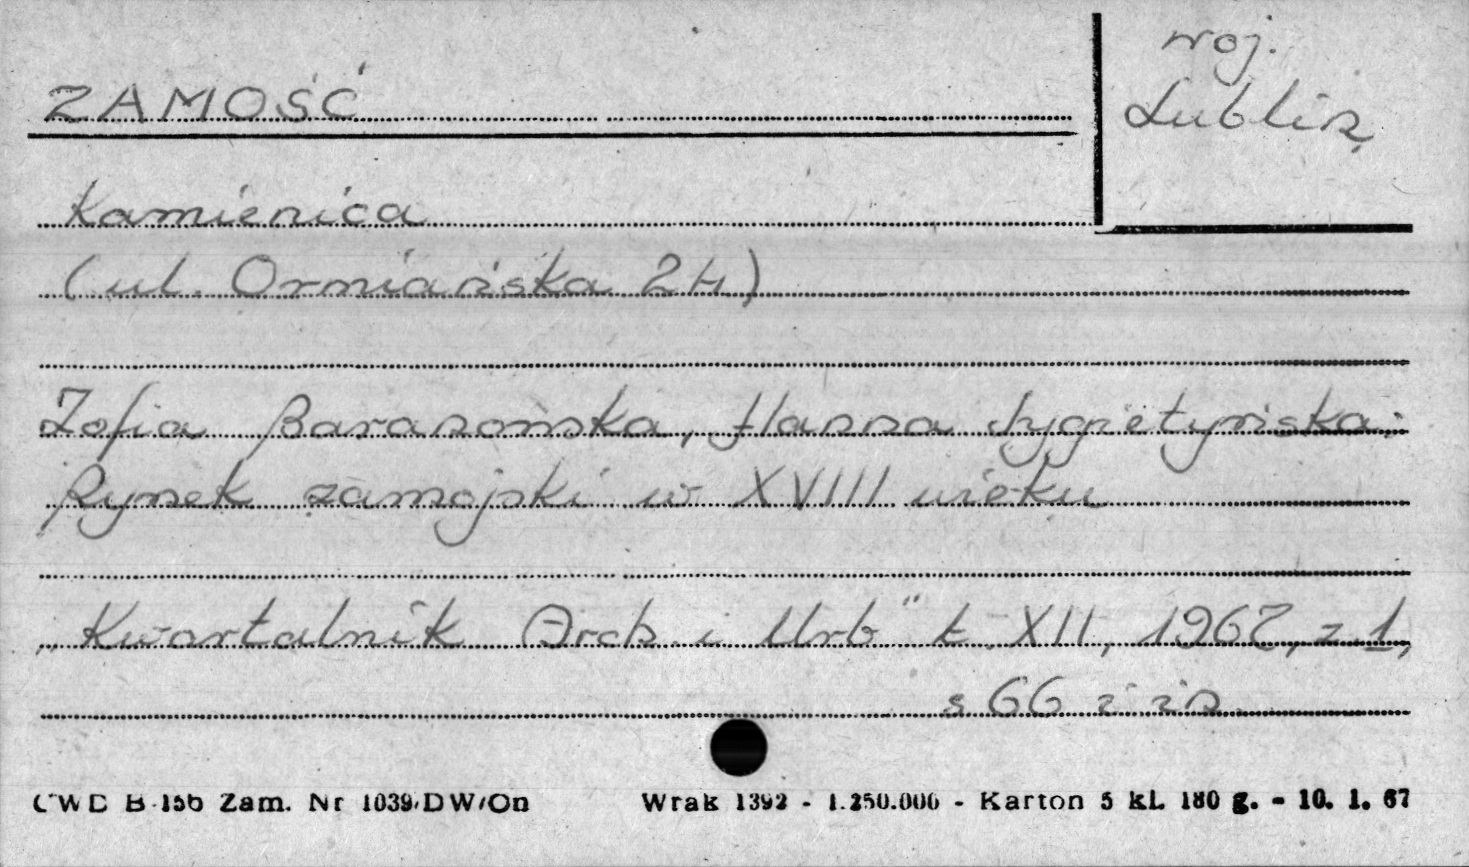 ZAMOŚĆ
woj.
Lublin,
Kamienica
(ul. Ormiańska 24)
Zofia Baranowska, Hanna Sygietyńska:
Rynek zamojski w XVIII wieku
„Kwartalnik Arch. i Urb" t. XII, 1967, z 1,
s 66 i in.
CWD B-156 Zam. Nr 1039/DW/On Wrak 1392 - 1.250.000 - Karton 5 kl. 180 g. - 10. 1. 67